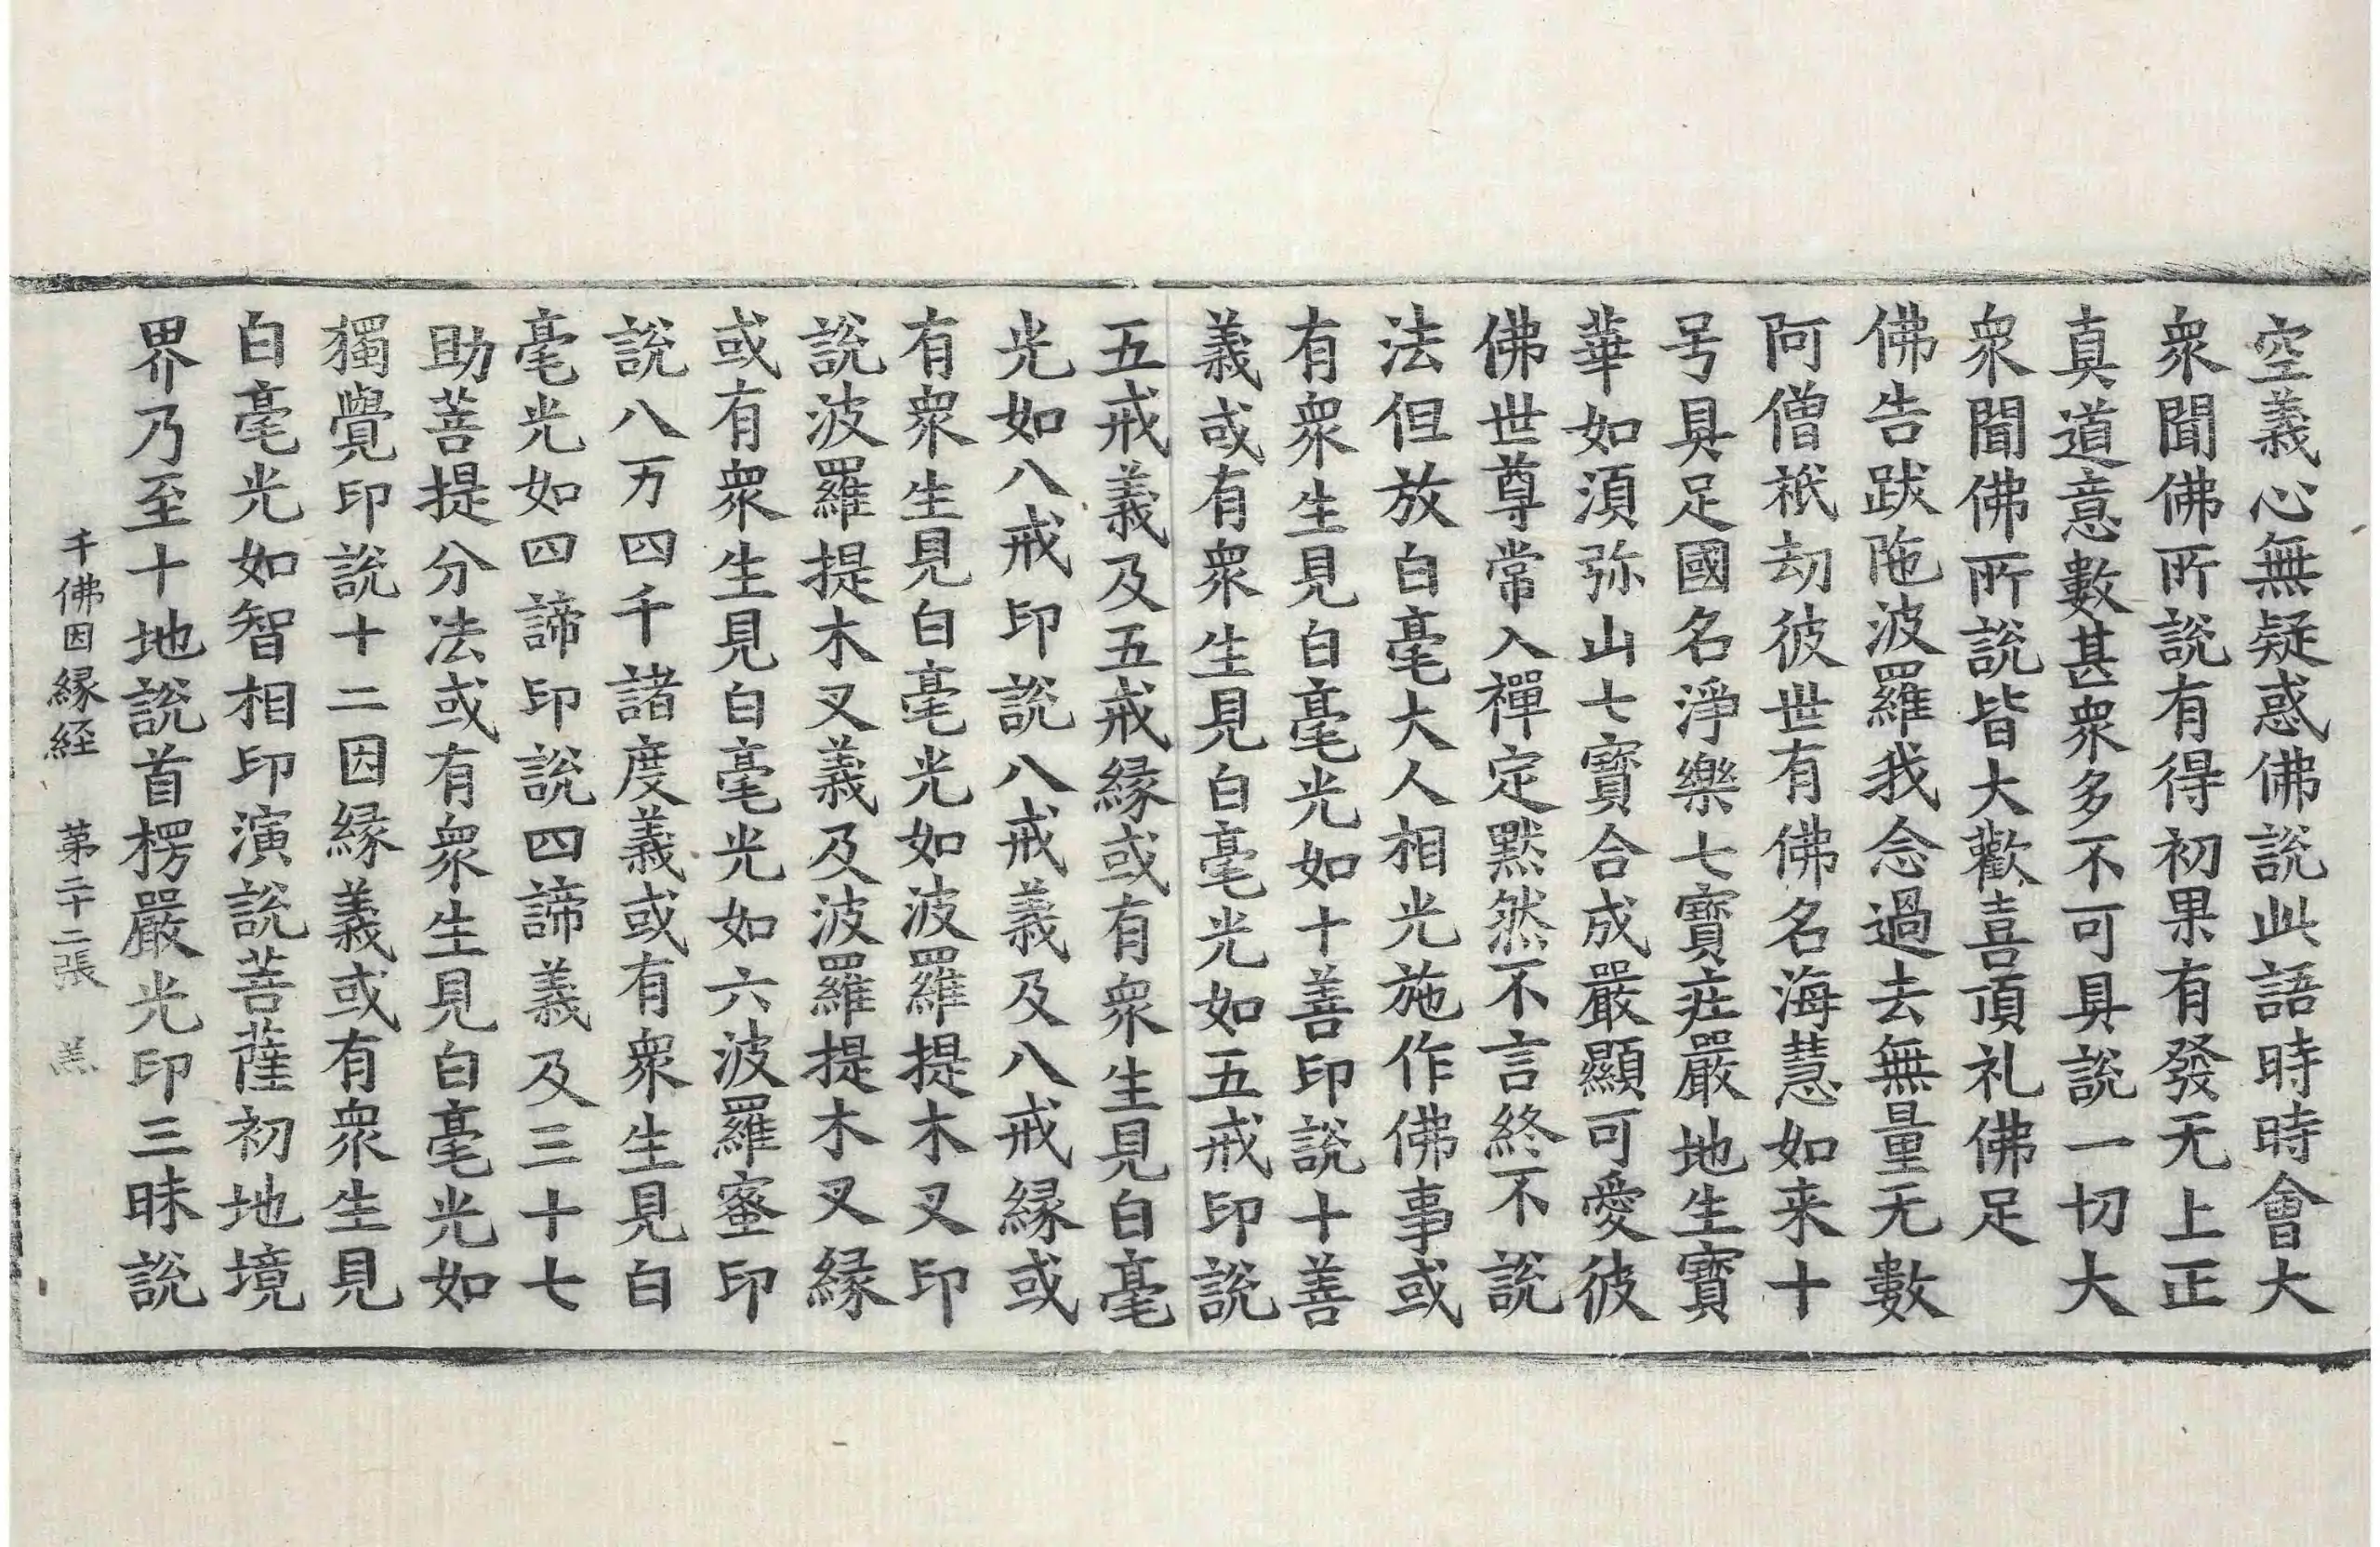 空義心無疑惑佛說此語時時會大
衆聞佛所說有得初果有發无上正
真道意數甚衆多不可具說一切大
衆聞佛所說皆大歡喜頂礼佛足
佛告跋陁波羅我念過去無量无數
阿僧祇劫彼世有佛名海慧如来十
号具足國名淨樂七寶庄嚴地生寶
華如須弥山七寶合成嚴顯可愛彼
佛世尊常入禪定默然不言終不說
法但放白毫大人相光施作佛事或
有衆生見白毫光如十善印說十善
義或有衆生見白毫光如五戒印說
五戒義及五戒縁或有衆生見白毫
光如八戒印說八戒義及八戒縁或
有衆生見白毫光如波羅提木叉印
說波羅提木叉義及波羅提木叉縁
或有衆生見白毫光如六波羅蜜印
說八万四千諸度義或有衆生見白
毫光如四諦印說四諦義及三十七
助菩提分法或有衆生見白毫光如
獨覺印說十二因縁義或有衆生見
白毫光如智相印演說菩薩初地境
界乃至十地說首楞嚴光印三昧說
千佛因縁経 第二十二張 羔